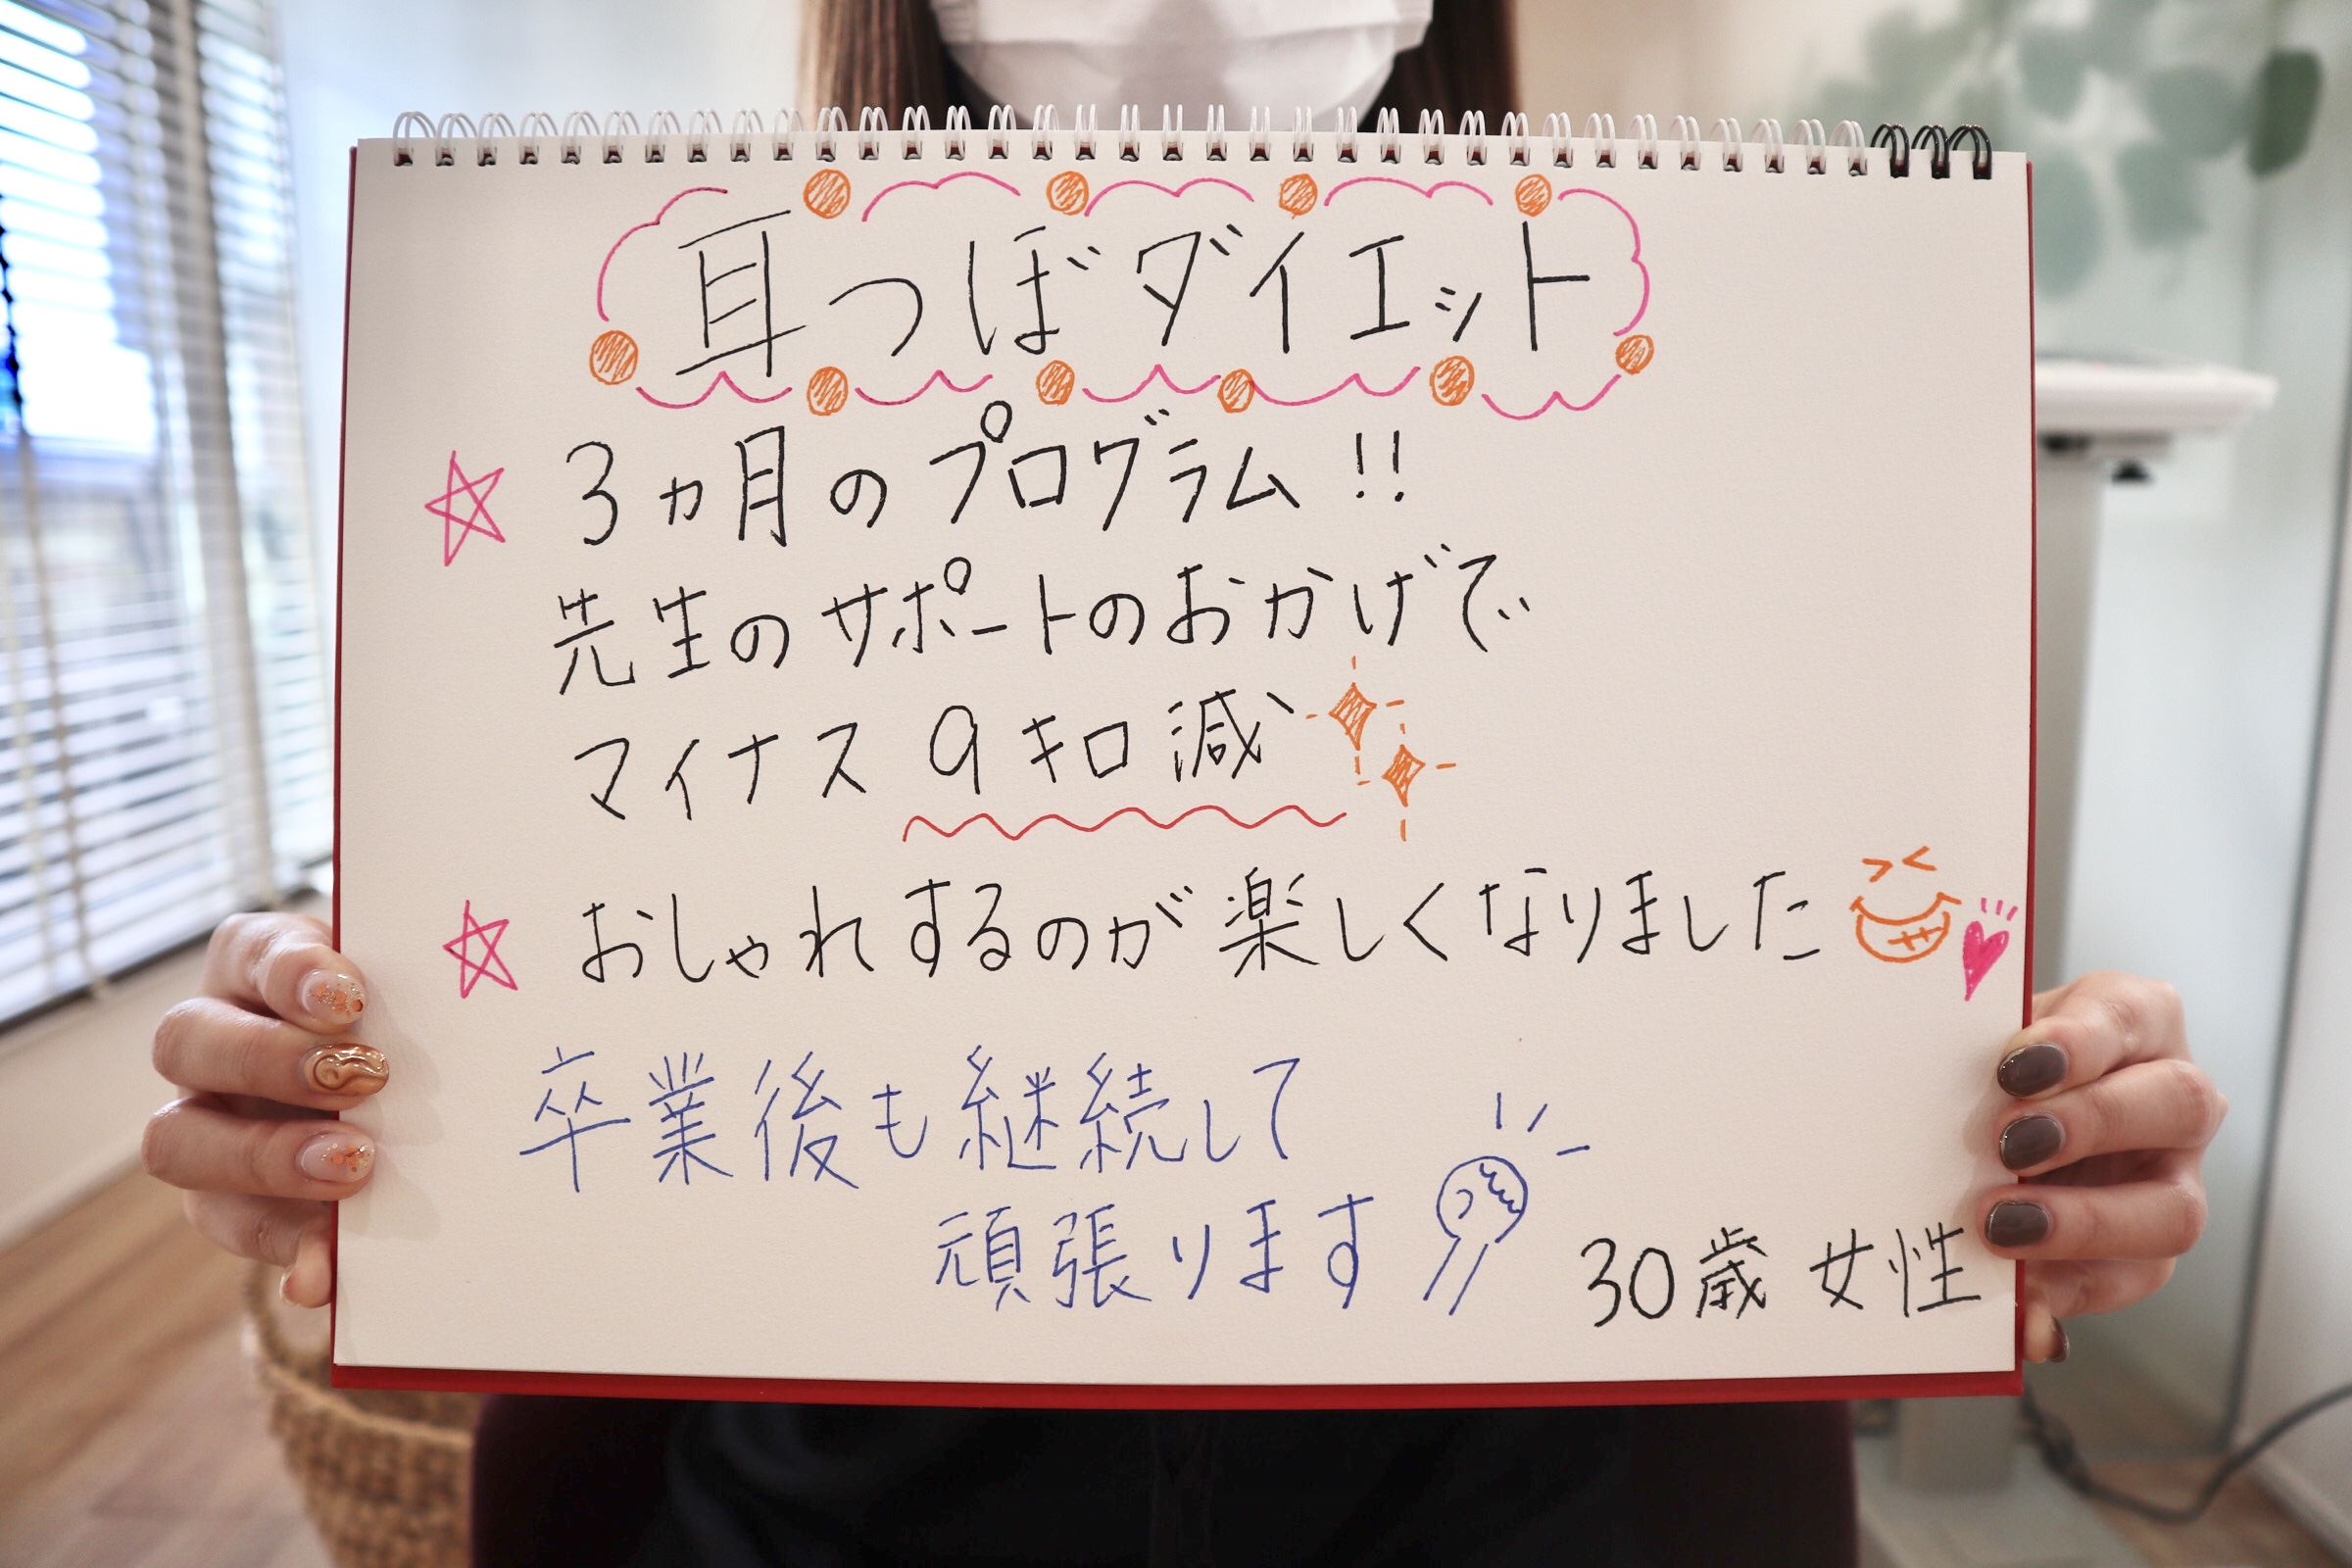 耳つぼダイエット
☆ 3ヵ月のプログラム!!
先生のサポートのおかげで
マイナス 9キロ減
☆ おしゃれするのが楽しくなりました
卒業後も継続して
頑張ります
30歳 女性